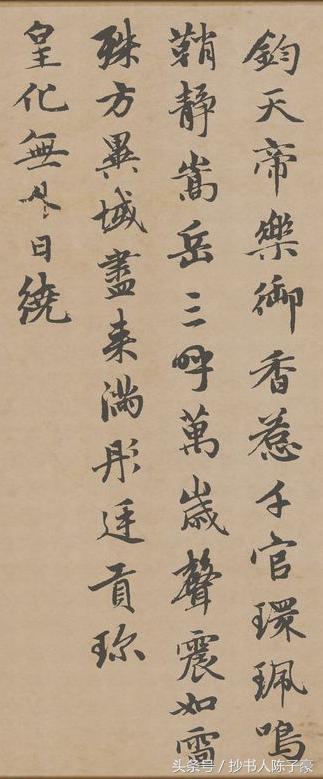 鈞天帝樂御香惹千官環珮鳴
鞘靜嵩岳三呼萬歲聲震如雷
殊方異域盡来滿彤廷貢珎
皇化無日繞
头条号 / 抄书人陈子豪